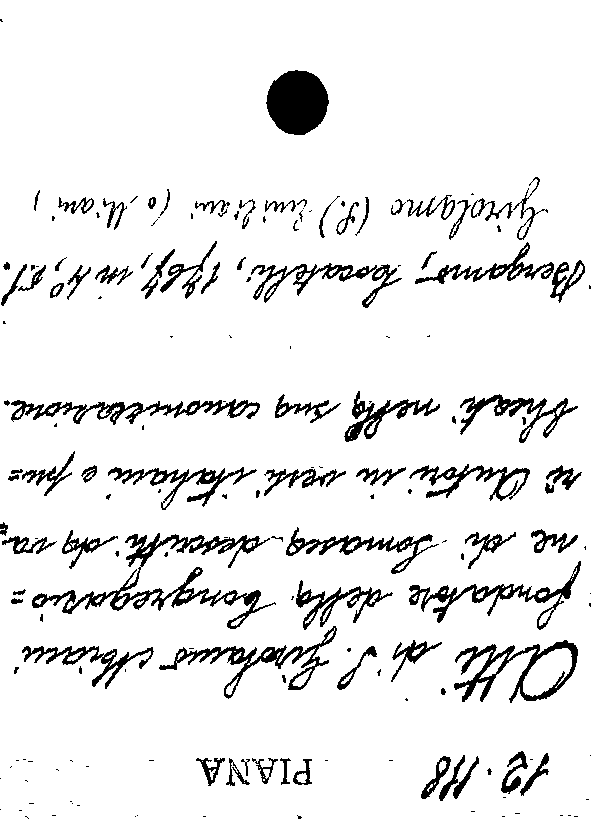 12.118 PIANA
Atti di S. Girolamo Miani
fondatore della Congregazio=
ne di Somasca descritti da va=
ri Autori in versi italiani e pu=
blicati nella sua canonizzazione.
Bergamo, Locatelli, 1767, in 4°,
Girolamo (S.) Emiliani (o Miani,